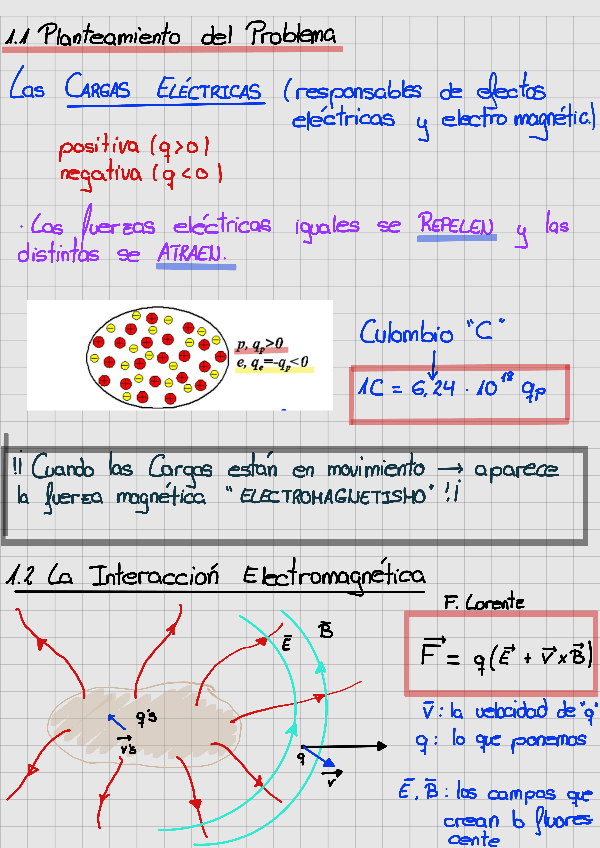 1.1 Planteamiento del Problema
Las CARGAS ELÉCTRICAS (responsables de efectos
eléctricas y electromagnética)
positiva (q>0)
negativa (q<0)
· Las fuerzas eléctricas iguales se REPELEN y las
distintas se ATRAEN.
p, qp>0
e, qe=-qp<0
Culombio "C"
1C = 6,24 · 10¹⁸ qp
!! Cuando las Cargas están en movimiento → aparece
la fuerza magnética "ELECTROMAGNETISMO" !¡
1.2 La Interacción Electromagnética
F. Lorente
F⃗ = q(E⃗ + v⃗ x B⃗)
E̅
B̅
q's
v⃗'s
q
v⃗
v̅: la velocidad de "q"
q: lo que ponemos
E̅, B̅: los campos que
crean b fluores
cente